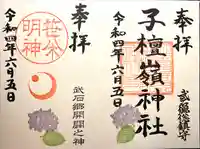 奉拝
武石総鎮守
子檀嶺神社
令和四年六月五日
奉拝
笹分
明神
武石郷開闢之神
令和四年六月五日